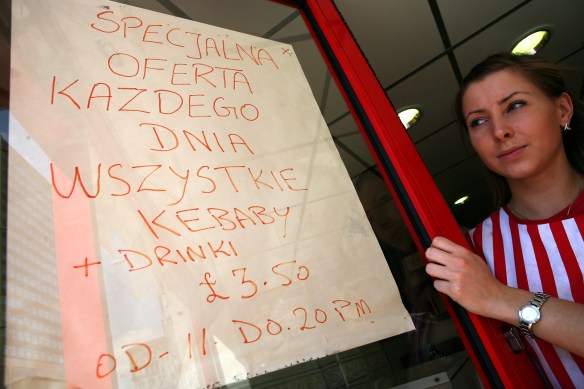 SPECJALNA *
OFERTA
KAZDEGO
DNIA
WSZYSTKIE
KEBABY
+ DRINKI
£3.50
OD-11 DO.20 PM